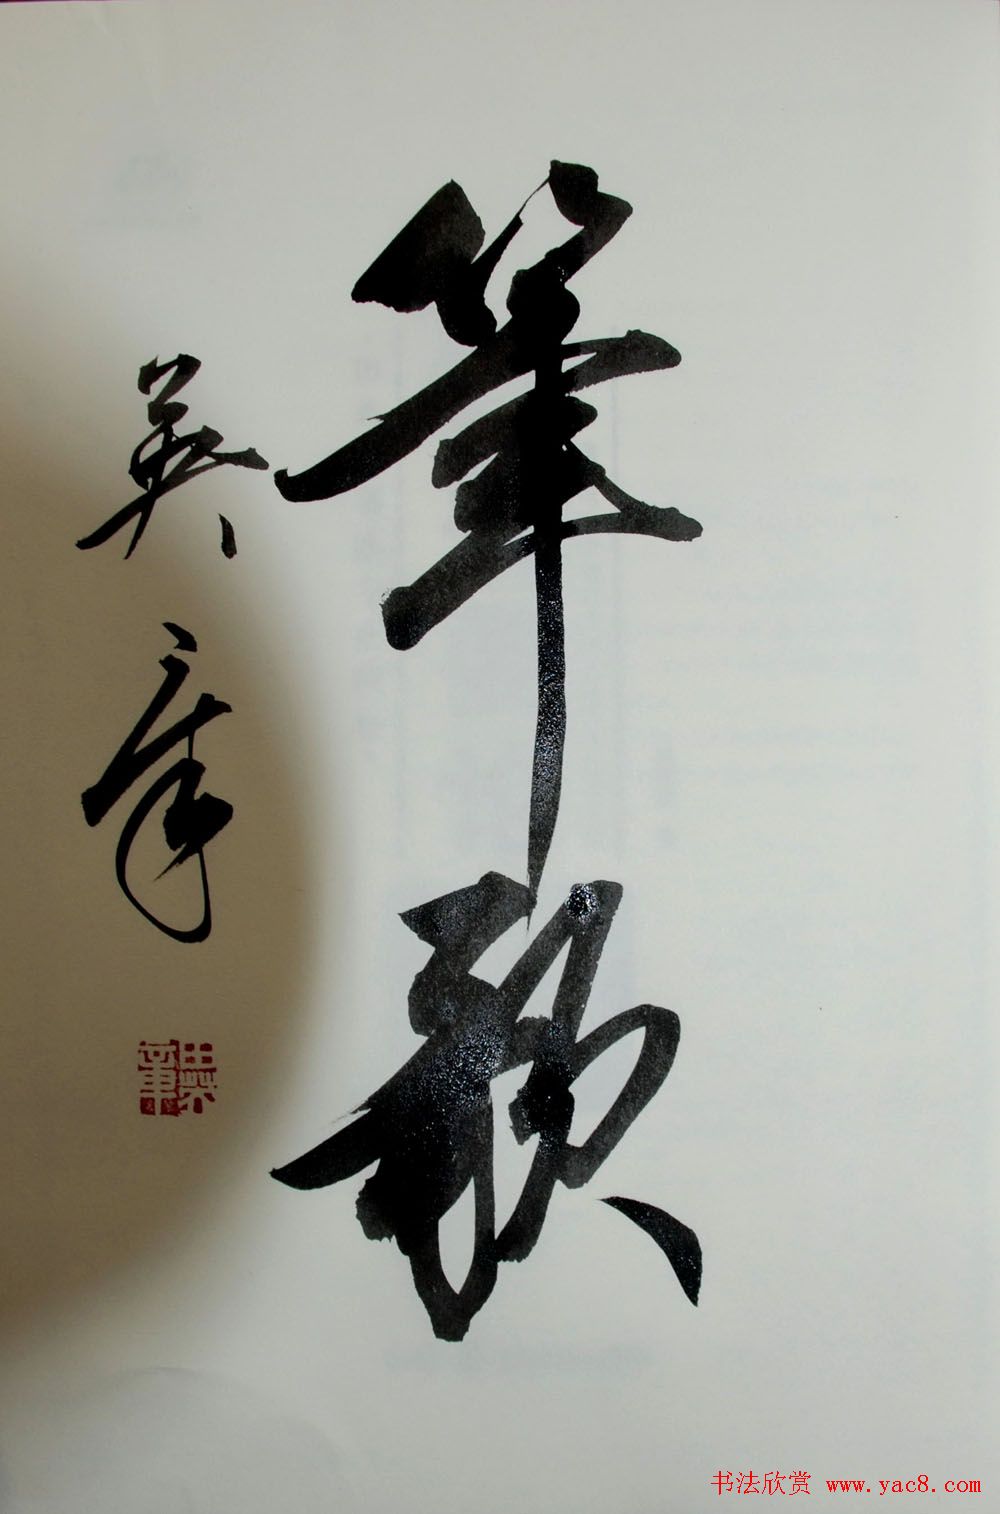 筆
英章
田英章
书法欣赏 www.yac8.com